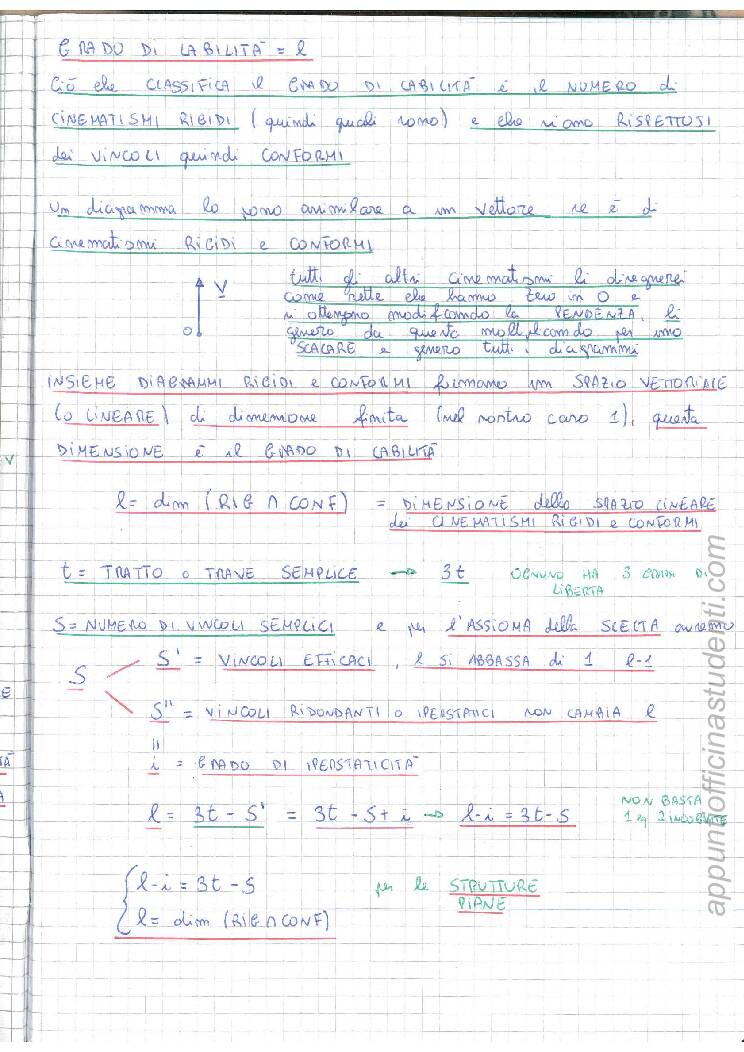 GRADO DI LABILITÀ = l
Ciò che CLASSIFICA il GRADO DI LABILITÀ è il NUMERO di
CINEMATISMI RIGIDI (quindi quali sono) e che siano RISPETTOSI
dei VINCOLI quindi CONFORMI
Un diagramma lo posso assimilare a un vettore se è di
cinematismi RIGIDI e CONFORMI
V
O
tutti gli altri cinematismi li disegnerei
come rette che hanno zero in O e
si ottengono modificando la PENDENZA, li
genero da questa moltiplicando per uno
SCALARE e genero tutti i diagrammi
INSIEME DIAGRAMMI RIGIDI e CONFORMI formano un SPAZIO VETTORIALE
(o LINEARE) di dimensione finita (nel nostro caso 1), questa
DIMENSIONE è il GRADO DI LABILITÀ
l = dim (RIG ∩ CONF) = DIMENSIONE dello SPAZIO LINEARE
dei CINEMATISMI RIGIDI e CONFORMI
t = TRATTO o TRAVE SEMPLICE → 3t OGNUNO HA 3 GRADI DI
LIBERTA
S = NUMERO DI VINCOLI SEMPLICI e per l'ASSIOMA della SCELTA avremo
S
S' = VINCOLI EFFICACI, l SI ABBASSA di 1 l-1
S'' = VINCOLI RIDONDANTI o IPERSTATICI NON CAMBIA l
=
i = GRADO DI IPERSTATICITÀ
l = 3t - S' = 3t - S + i → l - i = 3t - S
NON BASTA
1 eq 2 INCOGNITE
{ l - i = 3t - S
l = dim (RIG ∩ CONF)
per le STRUTTURE
PIANE
V
E
TÀ
A
appuntiofficinastudenti.com